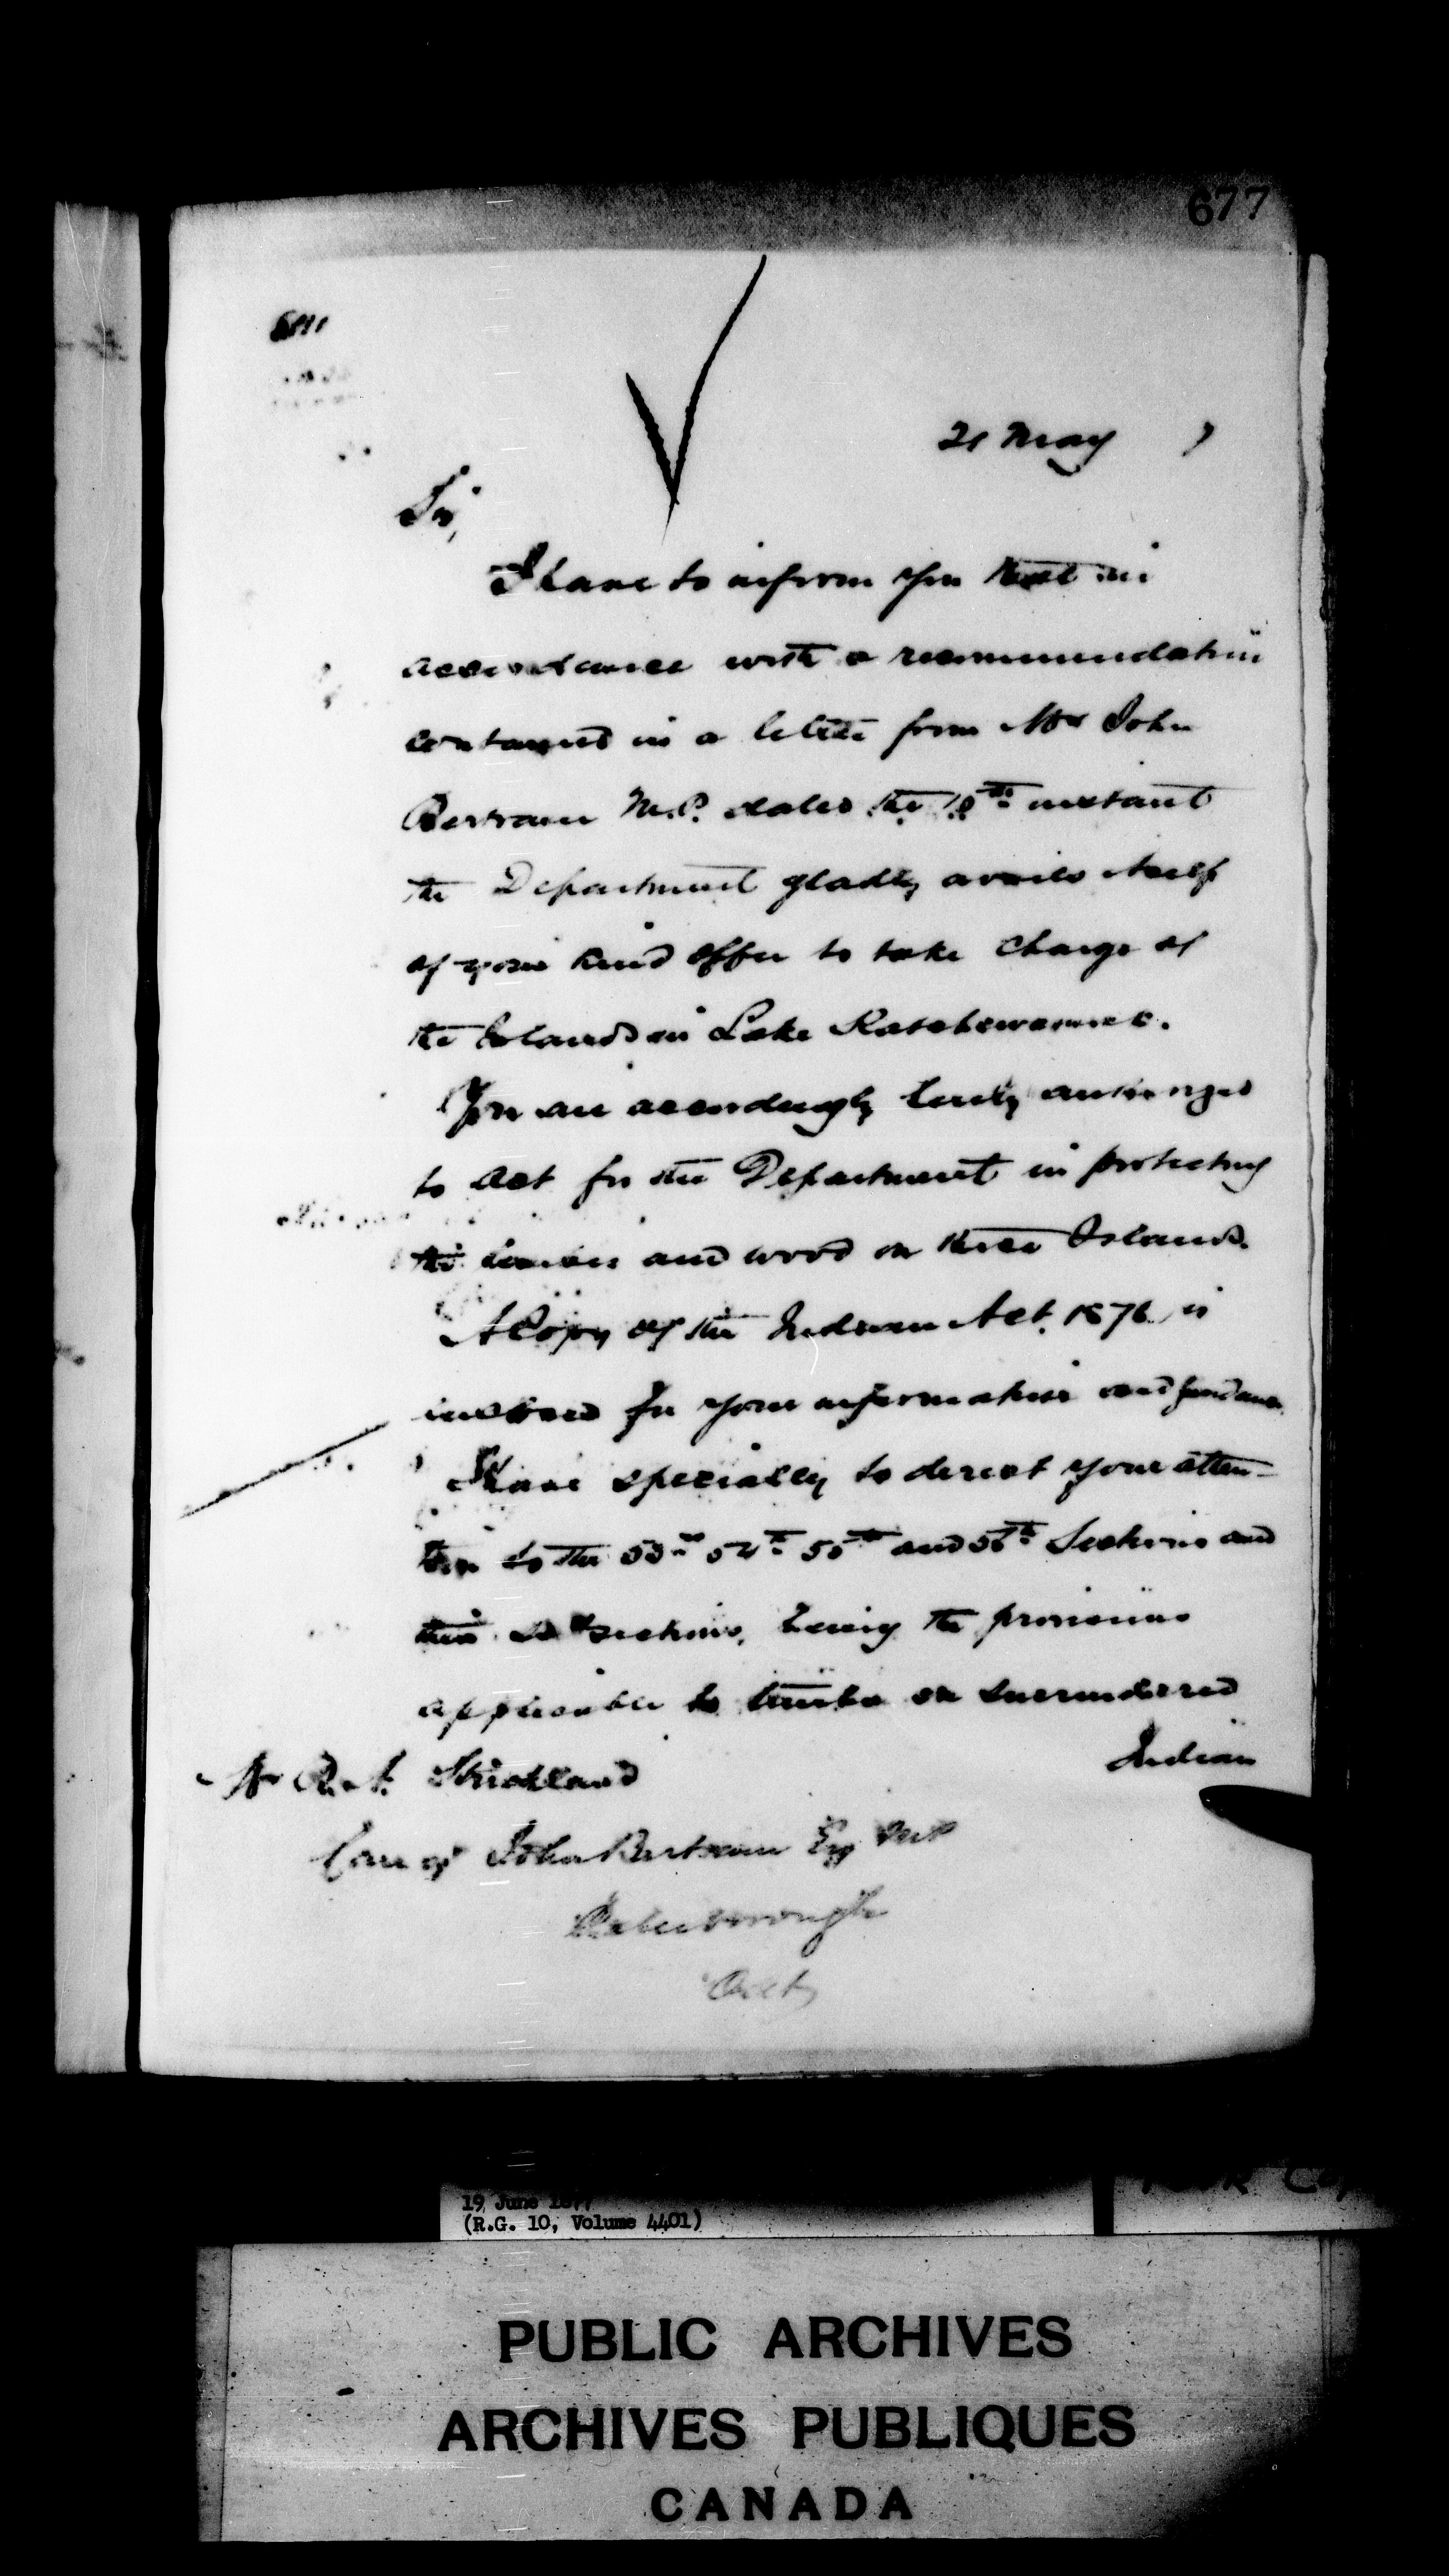 677
21 May 7
Sir,
I have to inform you that in
accordance with a recommendation
contained in a letter from Mr John
Bertram M.P. dated the 18th instant
the Department gladly avails itself
of your kind offer to take charge of
the Islands in Lake Katchewannoe.
You are accordingly hereby authorized
to act for the Department in protecting
the timber and wood on these Islands.
A Copy of the Indian Act, 1876 is
inclosed for your information and guidance.
I have specially to direct your atten-
tion to the 53rd 54th 55th and 56th Sections and
their sub sections, being the provisions
applicable to timber on surrendered
Indian
Mr R. A. Strickland
Care of John Bertram Esq MP
Peterborough
Ont
19 June 1877
(R.G. 10, Volume 4401)
PUBLIC ARCHIVES
ARCHIVES PUBLIQUES
CANADA